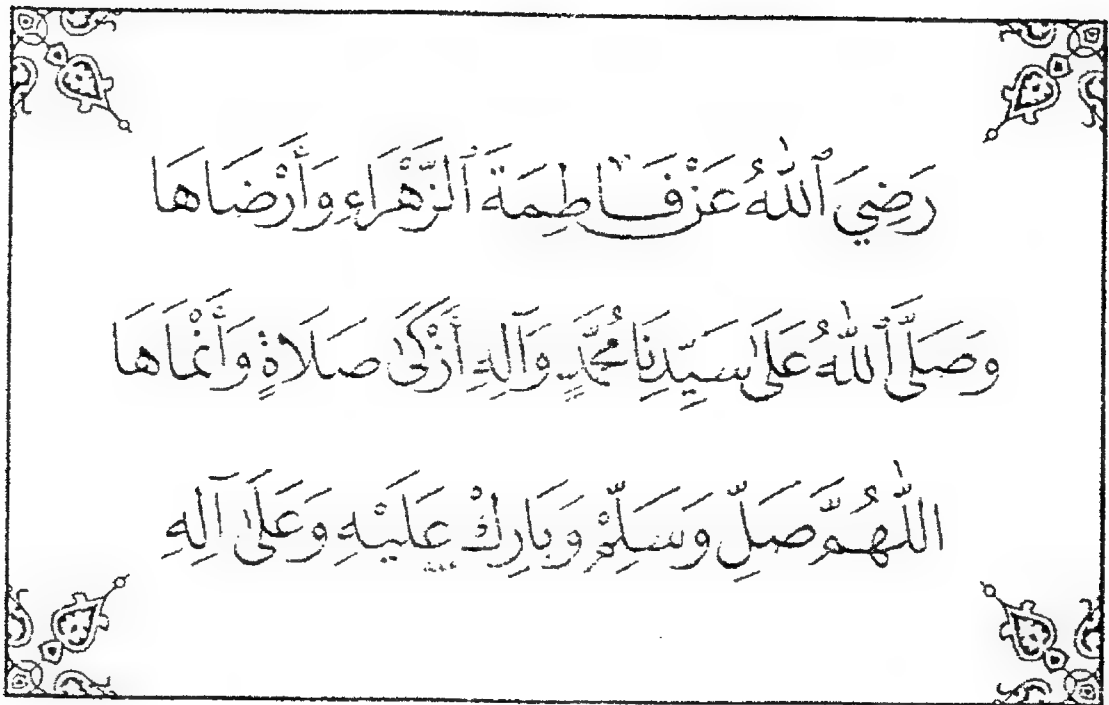 رَضِيَ ٱللّٰهُ عَنْ فَاطِمَةَ ٱلزَّهْرَاءِ وَأَرْضَاهَا
وَصَلَّى ٱللّٰهُ عَلَىٰ سَيِّدِنَا مُحَمَّدٍ وَآلِهِ أَزْكَىٰ صَلَاةٍ وَأَنْمَاهَا
اللّٰهُمَّ صَلِّ وَسَلِّمْ وَبَارِكْ عَلَيْهِ وَعَلَىٰ آلِهِ